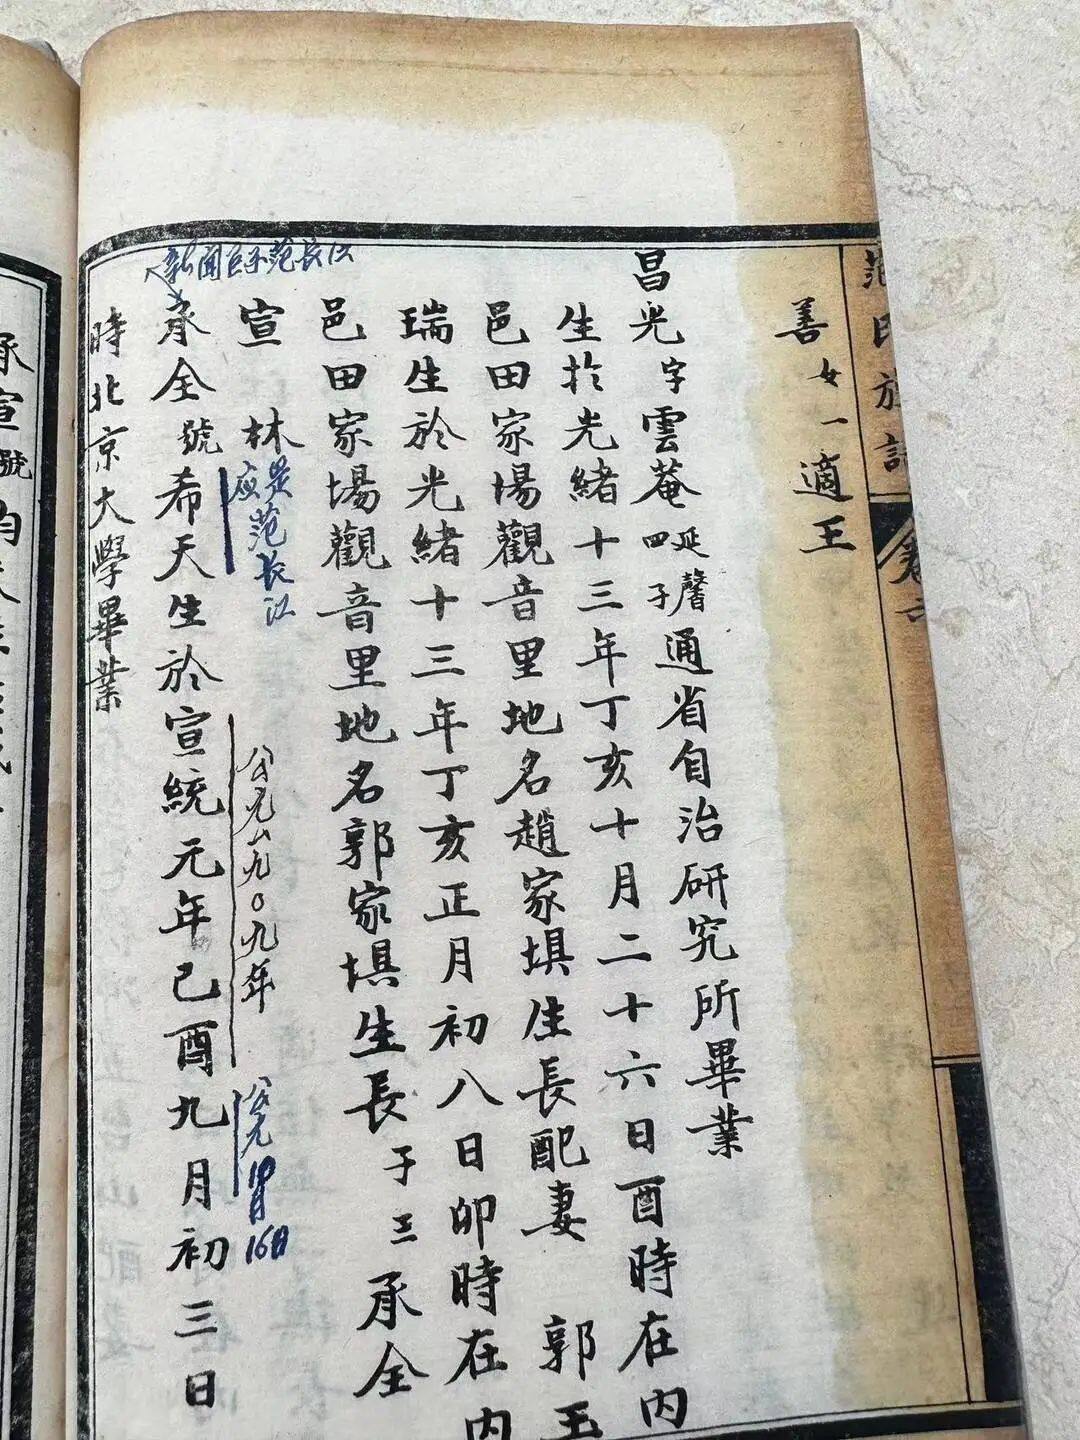 范氏族
卷
善 女一適王
昌光字雲菴延馨四子通省自治研究所畢業
生於光緒十三年丁亥十月二十六日酉時在内
邑田家場觀音里地名趙家埧生長配妻 郭玉
瑞生於光緒十三年丁亥正月初八日卯時在内
邑田家場觀音里地名郭家埧生長子三承全
宣 林
是范长江
应
公元一九〇九年
公元10月16日
新闻巨子范长江
承全號希天生於宣統元年己酉九月初三日
時北京大學畢業
承宣號